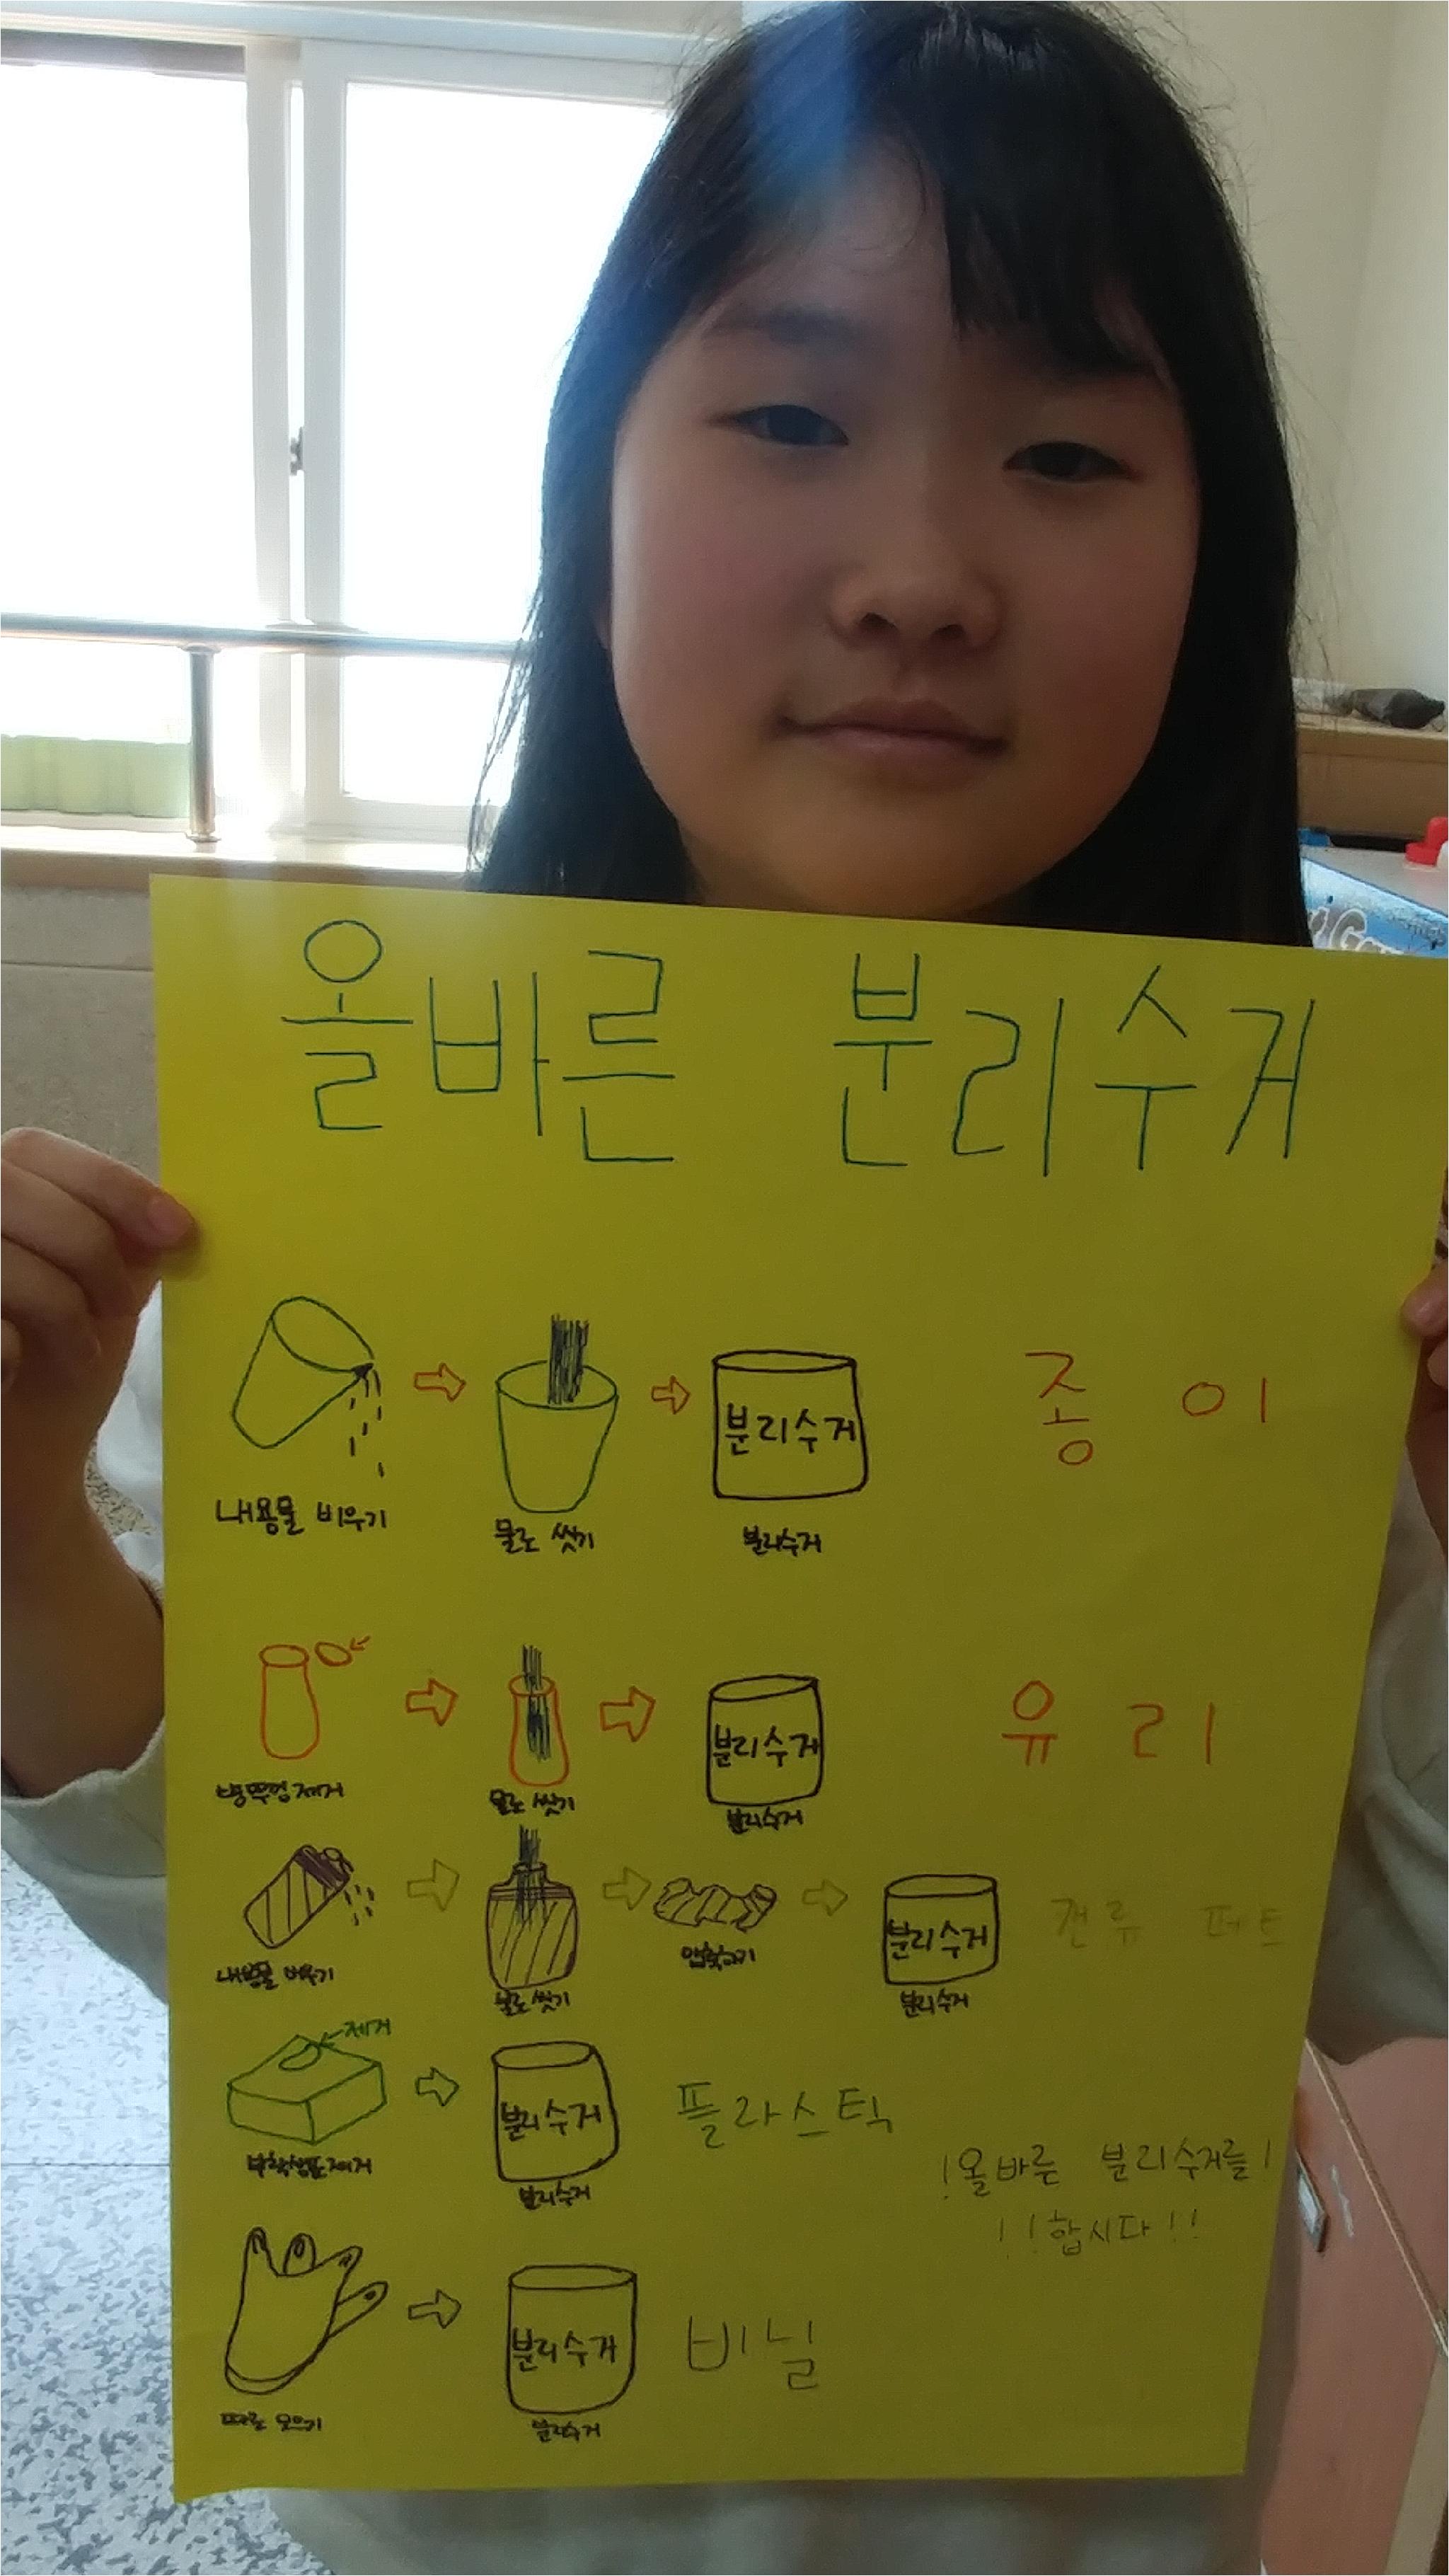 올바른 분리수거
분리수거 종이
내용물 비우기 물로 씻기 분리수거
분리수거 유리
병뚜껑 제거 물로 씻기 분리수거
분리수거 캔류 페트
내용물 비우기 물로 씻기 압축하기 분리수거
제거
분리수거 플라스틱
부착상표 제거 분리수거
!올바른 분리수거를!
!!합시다!!
분리수거 비닐
따로 모으기 분리수거